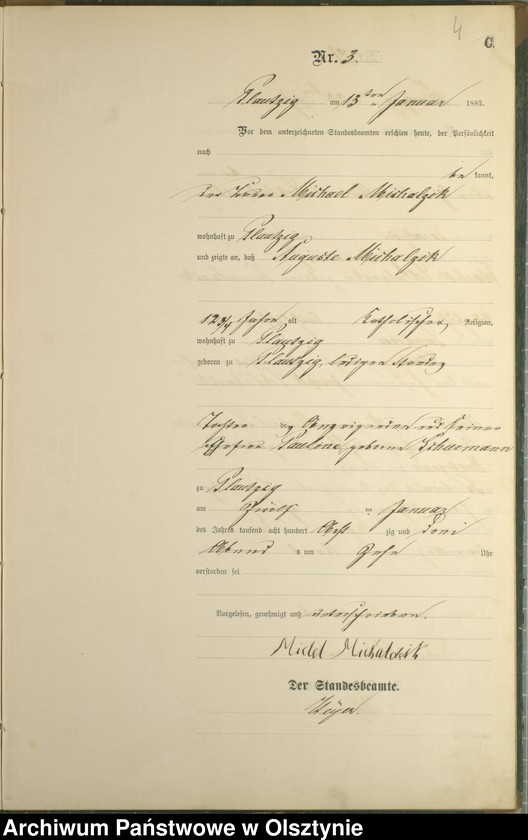 4
C.
Nr. 3.
Plautzig am 13ten Januar 1883.
Vor dem unterzeichneten Standesbeamten erschien heute, der Persönlichkeit
nach
be kannt,
Michael Michalzik
wohnhaft zu Plautzig
und zeigte an, daß Auguste Michalzik
12 3/4 Jahre alt Katholischer Religion,
wohnhaft zu Plautzig
geboren zu Plautzig, ledigen Standes
Tochter des Anzeigenden und seiner
Ehefrau Pauline, geborene
zu Plautzig
am Zwölf ten Januar
des Jahres tausend acht hundert Acht zig und Drei
Abends um Zehn Uhr
verstorben sei
Vorgelesen, genehmigt und unterschrieben.
Der Standesbeamte.
Archiwum Państwowe w Olsztynie